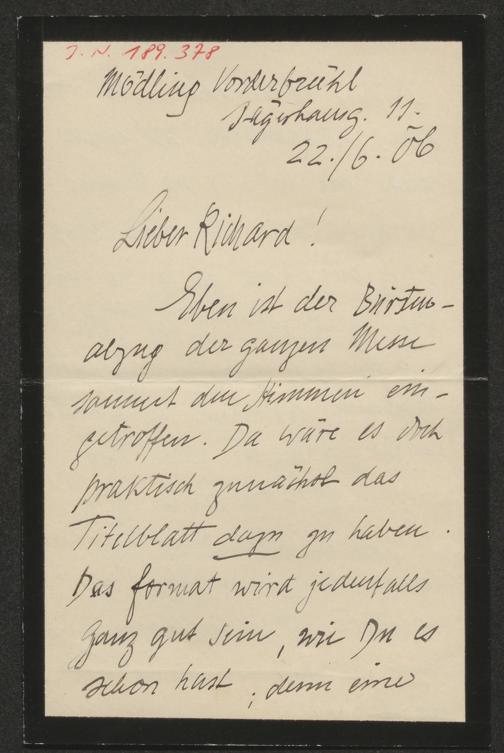 J. N. 189.378
Mödling Vorderbrühl
Jägerhausg. 11.
22./6. 06
Lieber Richard!
Eben ist der Bürsten-
abzug der ganzen Messe
sammt den Stimmen ein-
getroffen. Da wäre es doch
praktisch zunächst das
Titelblatt dazu zu haben.
Das Format wird jedenfalls
ganz gut sein, wie Du es
schon hast, denn eine